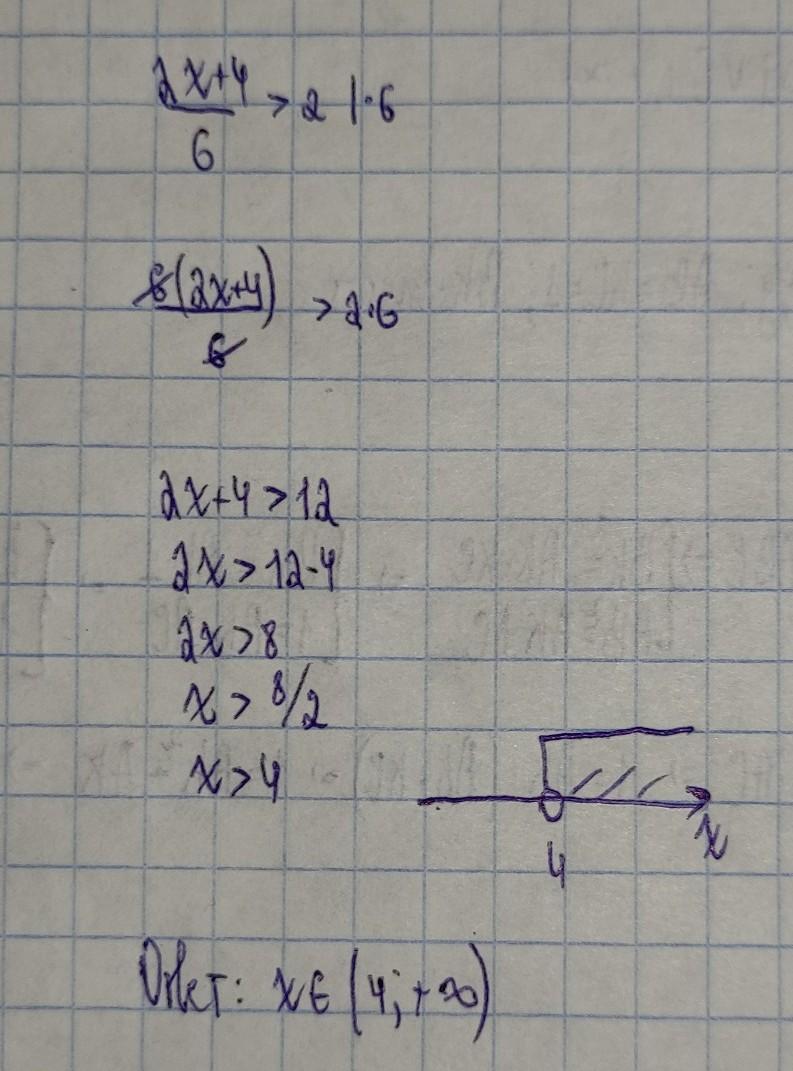 2x+4
6
> 2 |·6
6(2x+4)
6
> 2·6
2x+4>12
2x>12-4
2x>8
x> 8/2
x>4
4
x
Ответ: x∈(4;+∞)